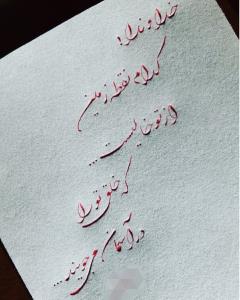 خداوندا!
کدام نقطه زمین
از تو خالیست...
که خلق تو را
در آسمان می‌جویند...